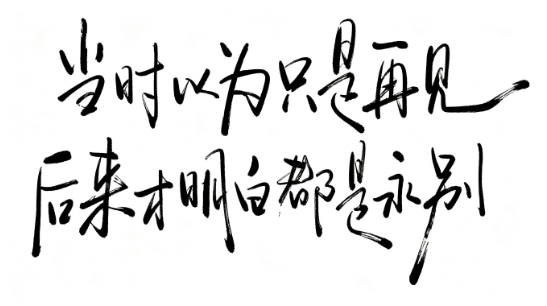 当时以为只是再见
后来才明白都是永别